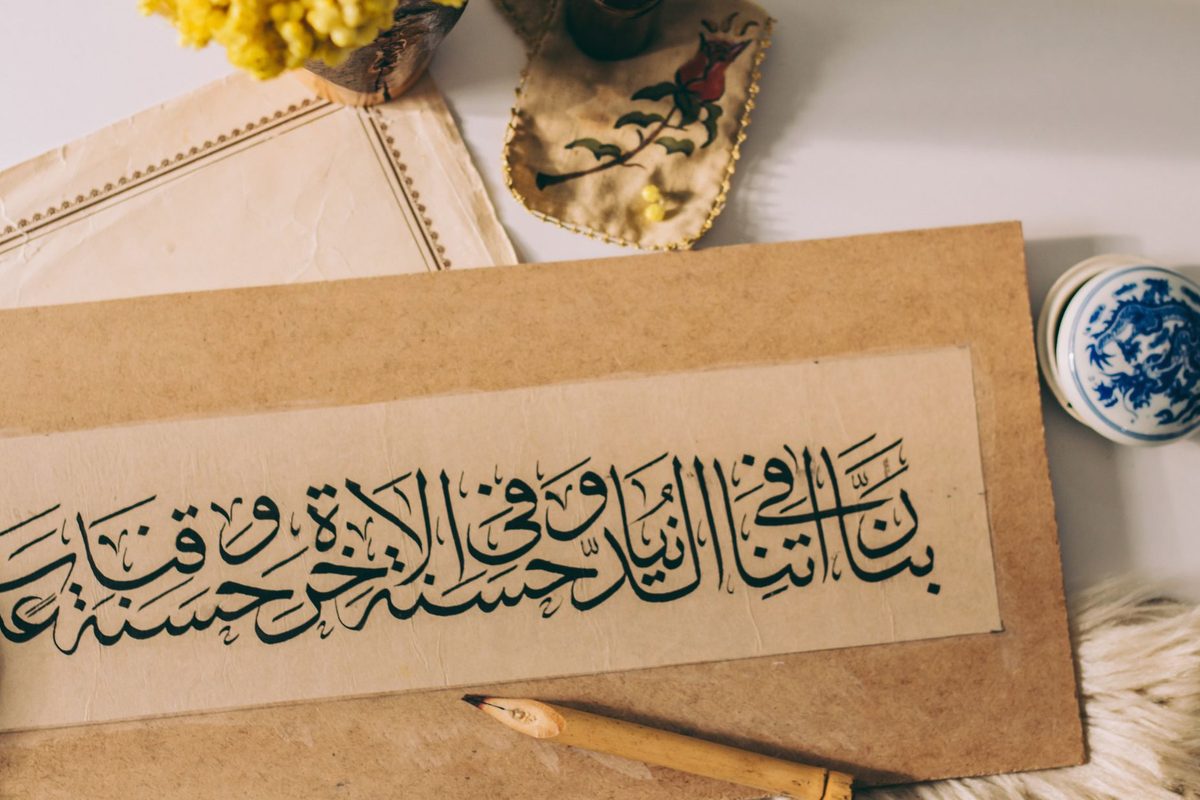 ربنا اتنا فى الدنيا حسنة و فى الاخرة حسنة و قنا